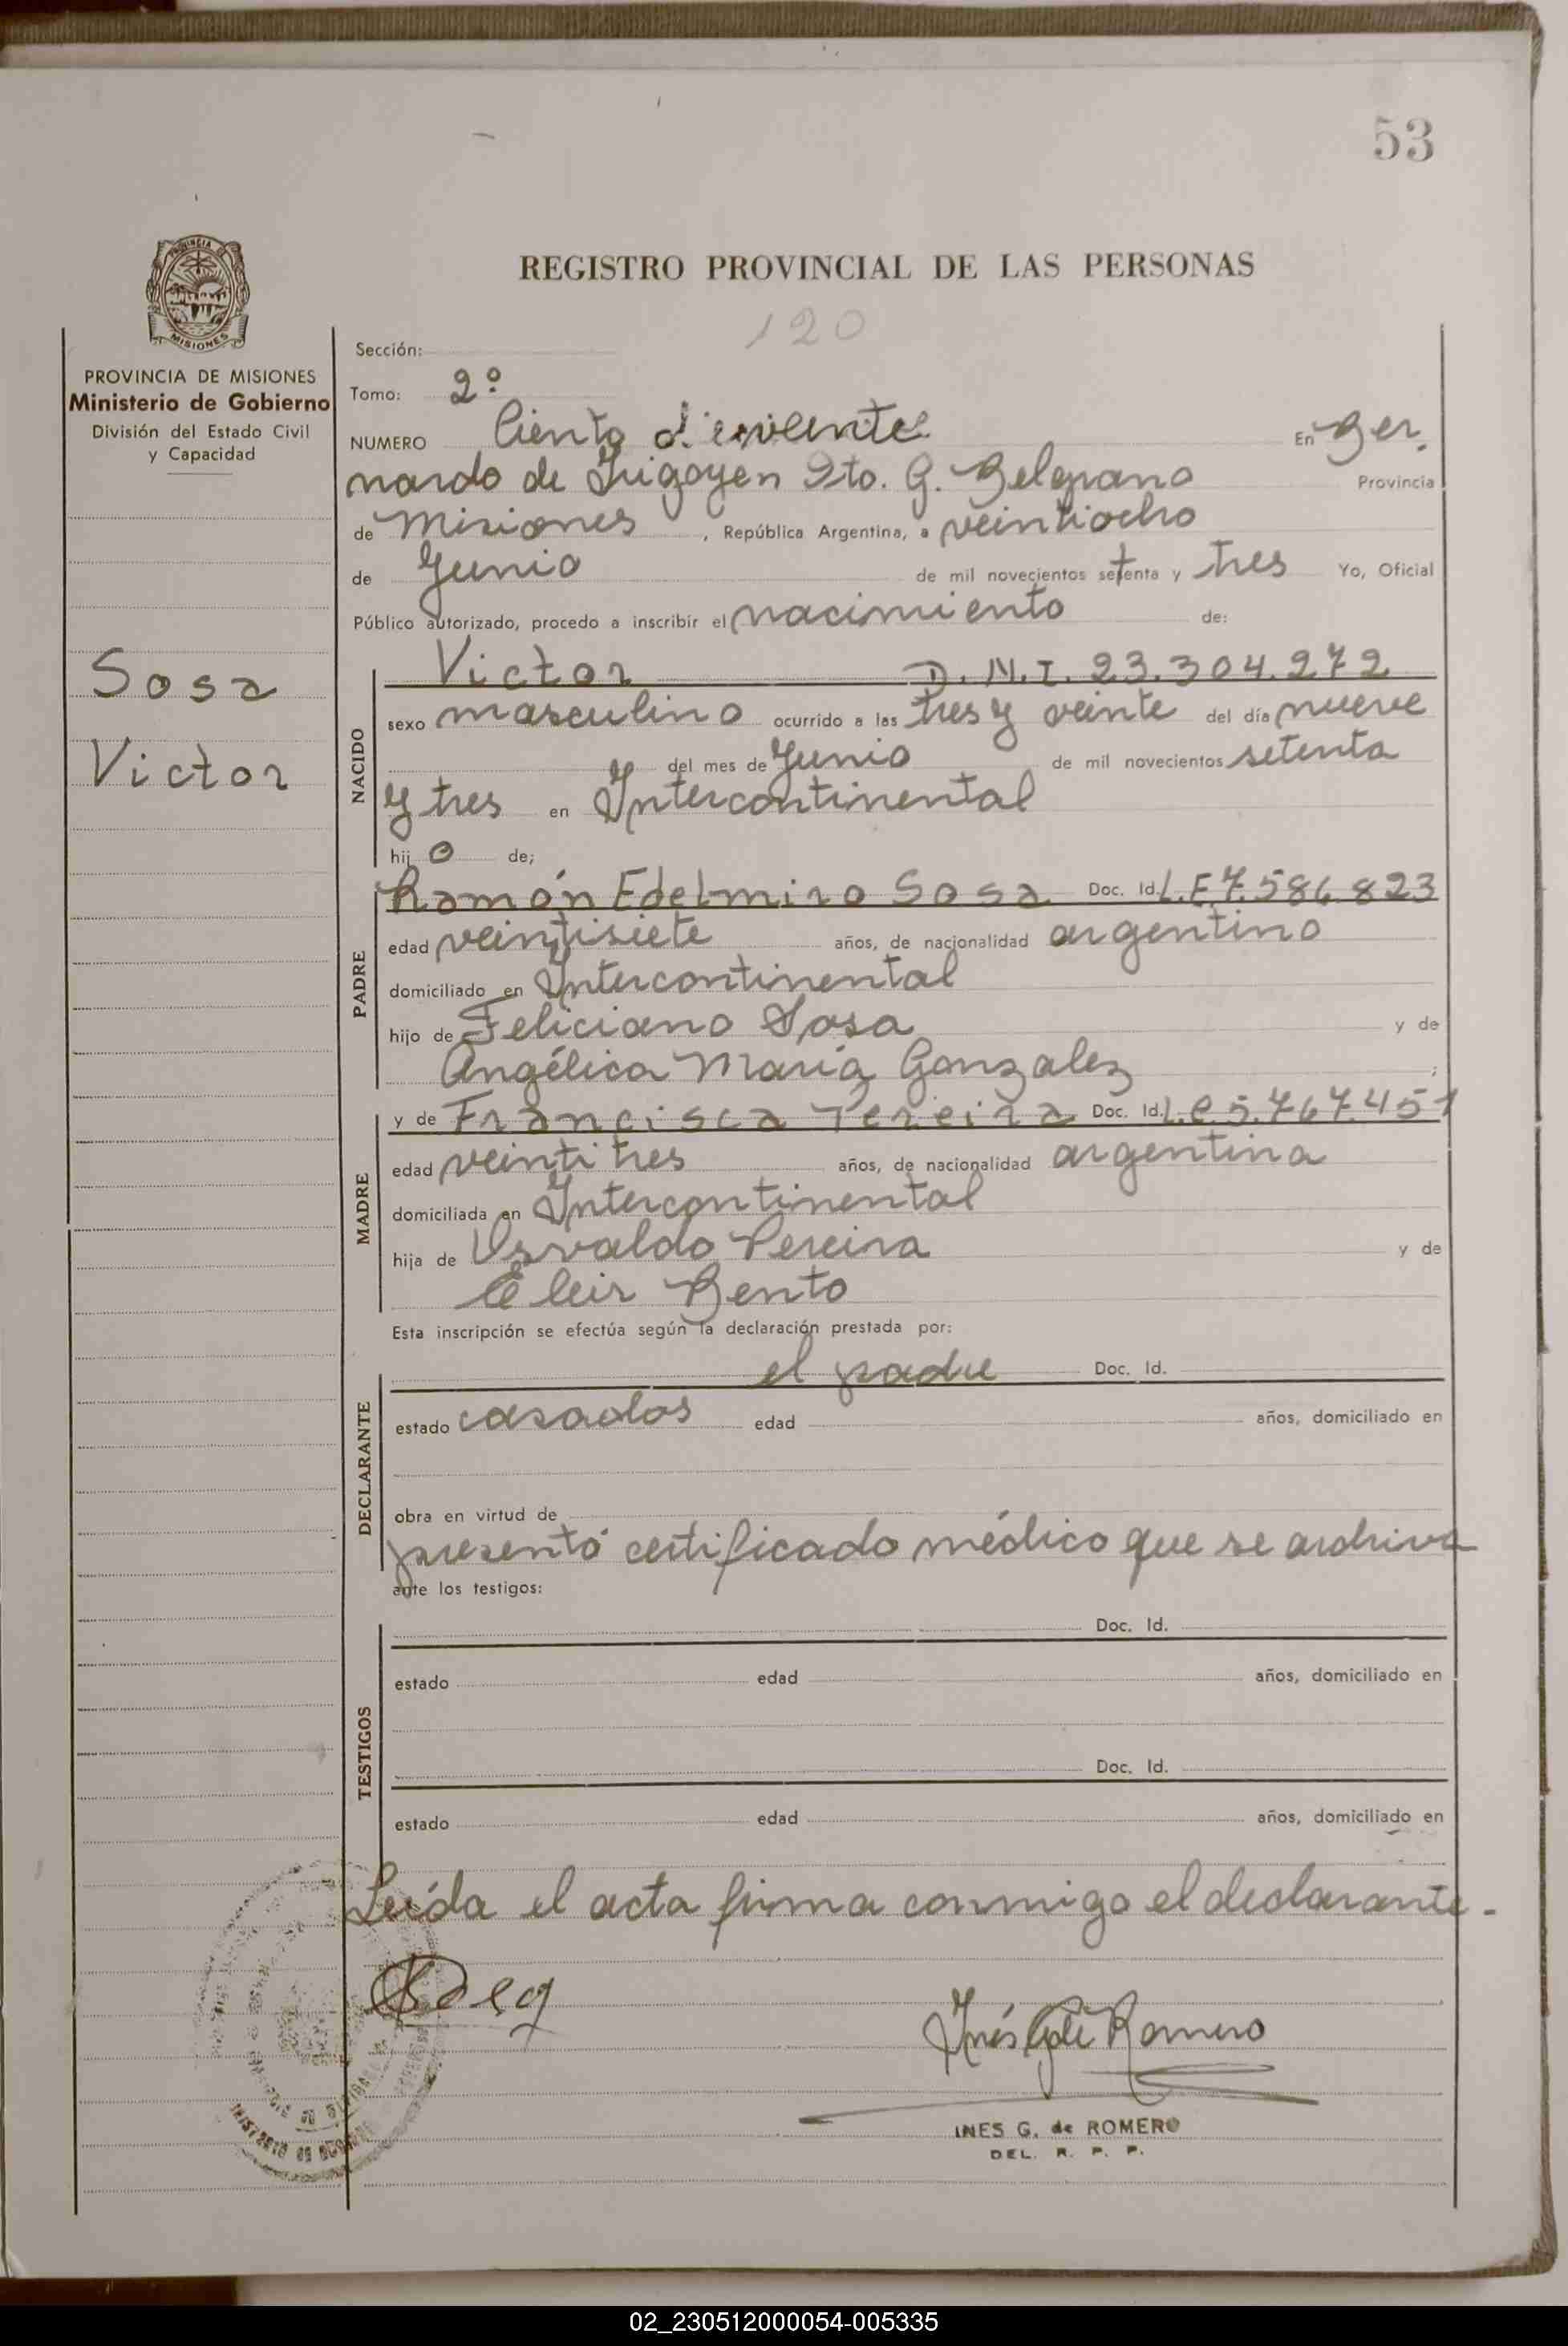 53
REGISTRO PROVINCIAL DE LAS PERSONAS
120
PROVINCIA DE MISIONES
Ministerio de Gobierno
División del Estado Civil
y Capacidad
Sosa
Victor
Sección:
Tomo: 2º
NUMERO Ciento veinte En Ber.
nardo de Irigoyen Dto. G. Belgrano Provincia
de Misiones, República Argentina, a veintiocho
de Junio de mil novecientos setenta y tres Yo, Oficial
Público autorizado, procedo a inscribir el nacimiento de:
NACIDO
Victor D.N.I. 23.304.272
sexo masculino ocurrido a las tres y veinte del día nueve
del mes de Junio de mil novecientos setenta
y tres en Intercontinental
hijo de;
PADRE
Ramón Edelmiro Sosa Doc. Id. L.E 7.586.823
edad veintisiete años, de nacionalidad argentino
domiciliado en Intercontinental
hijo de Feliciano Sosa y de
Angélica María Gonzalez;
MADRE
y de Francisca Pereira Doc. Id. L.C 5.767.451
edad veintitres años, de nacionalidad argentina
domiciliada en Intercontinental
hija de Osvaldo Pereira y de
Eleir Bento
Esta inscripción se efectúa según la declaración prestada por:
DECLARANTE
el padre Doc. Id.
estado casados edad años, domiciliado en
obra en virtud de
presentó certificado médico que se archiva
ante los testigos:
TESTIGOS
Doc. Id.
estado edad años, domiciliado en
Doc. Id.
estado edad años, domiciliado en
Leída el acta firma conmigo el declarante.-
Inés G de Romero
INES G. de ROMERO
DEL. R. P. P.
02_230512000054-005335